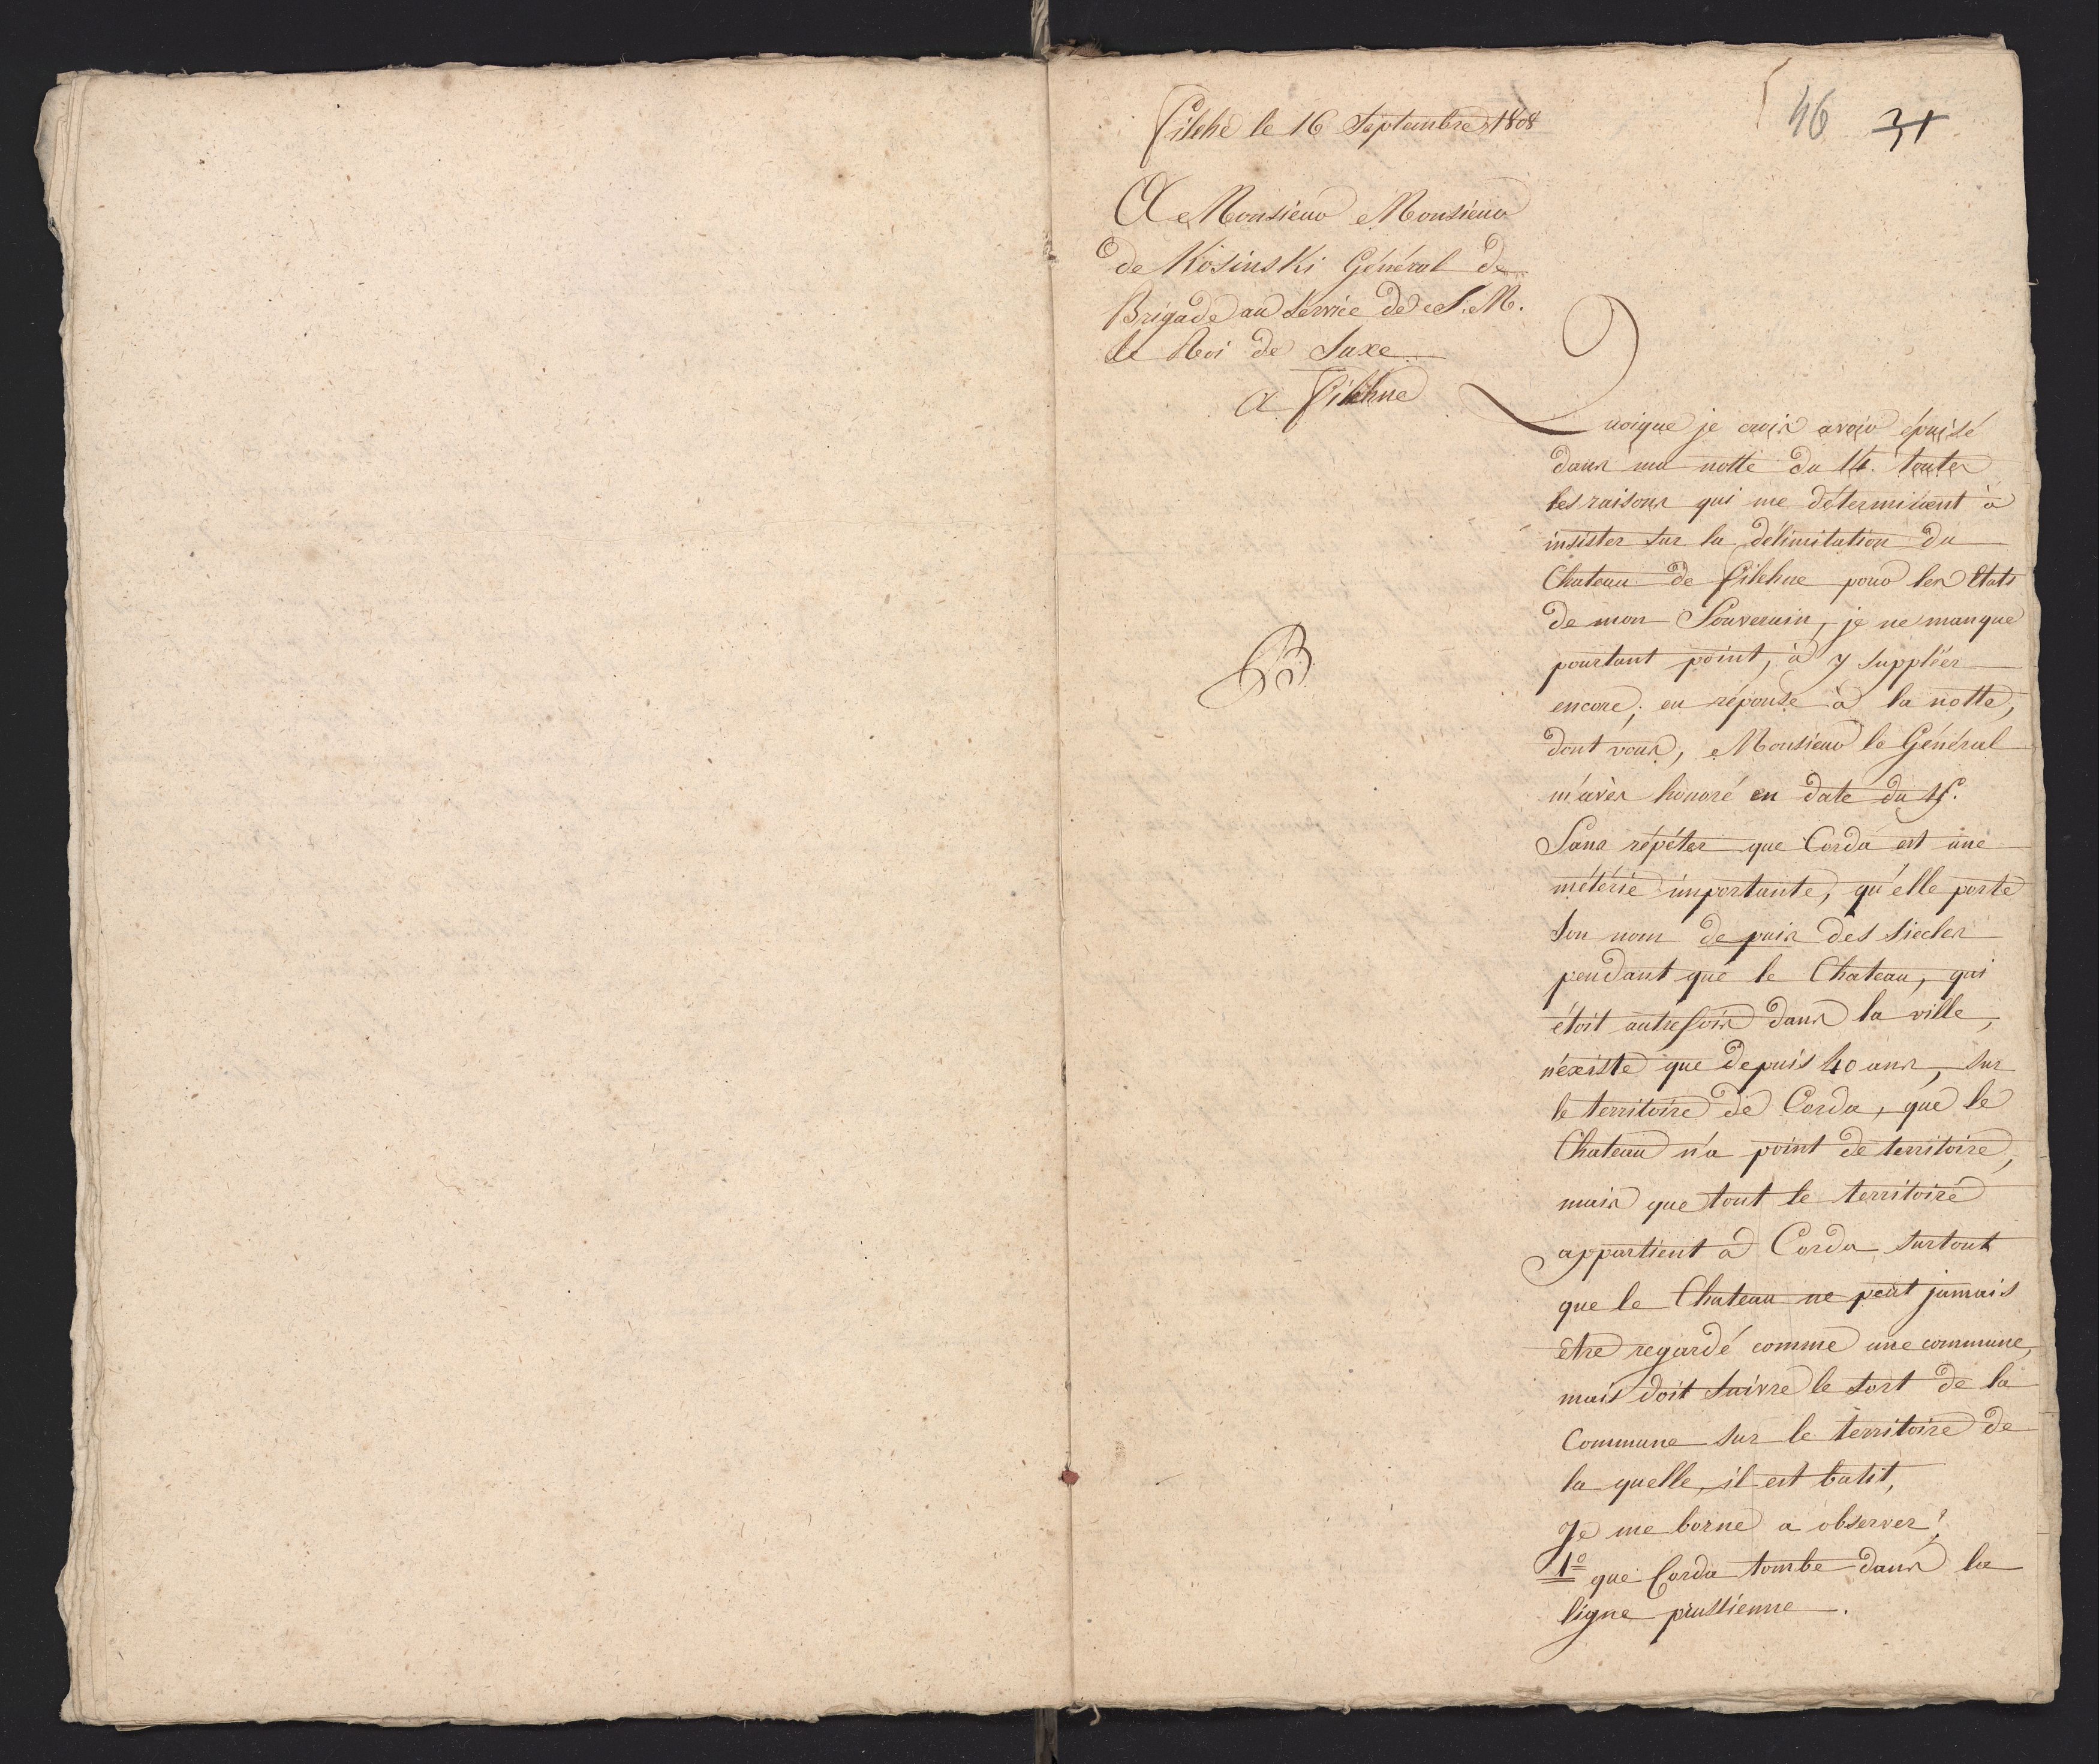 Filehe le 16 Septembre 1808
46 31
A Monsieur Monsieur
de Kosinski Général de
Brigade au service de S. M.
le Roi de Saxe
a Filehne
Quoique je crois avoir épuisé
dans ma notte du 14. toutes
les raisons qui me déterminent à
insister sur la délimitation du
Chateau de Filehne pour les Etats
de mon Souverain, je ne manque
pourtant point, à y suppléer
encore, en réponse à la notte,
B
dont vous, Monsieur le Général
m'avès honoré en date du 15.
Sans répéter que Corda est une
métérie importante, qu'elle porte
son nom de puis des siecles
pendant que le Chateau, qui
étoit autrefois dans la ville,
n'existe que depuis 40 ans, sur
le territoire de Corda, que le
Chateau n'a point de territoire,
mais que tout le territoire
appartient à Corda surtout
que le Chateau ne peut jamais
etre regardé comme une commune,
mais doit suivre le sort de la
Commune sur le territoire de
la quelle, il est batit,
Je me borne a observer,
1º que Corda tombe dans la
ligne prussienne.